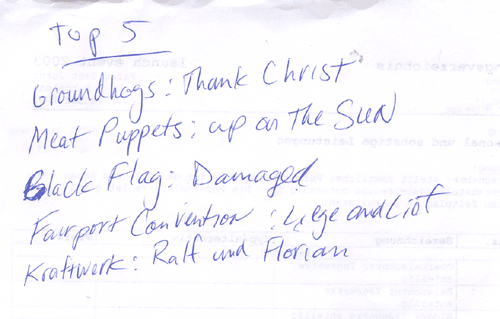 Top 5
Groundhogs: Thank Christ
Meat Puppets: up on The SUN
Black Flag: Damaged
Fairport Convention: Liege and Lief
Kraftwerk: Ralf und Florian